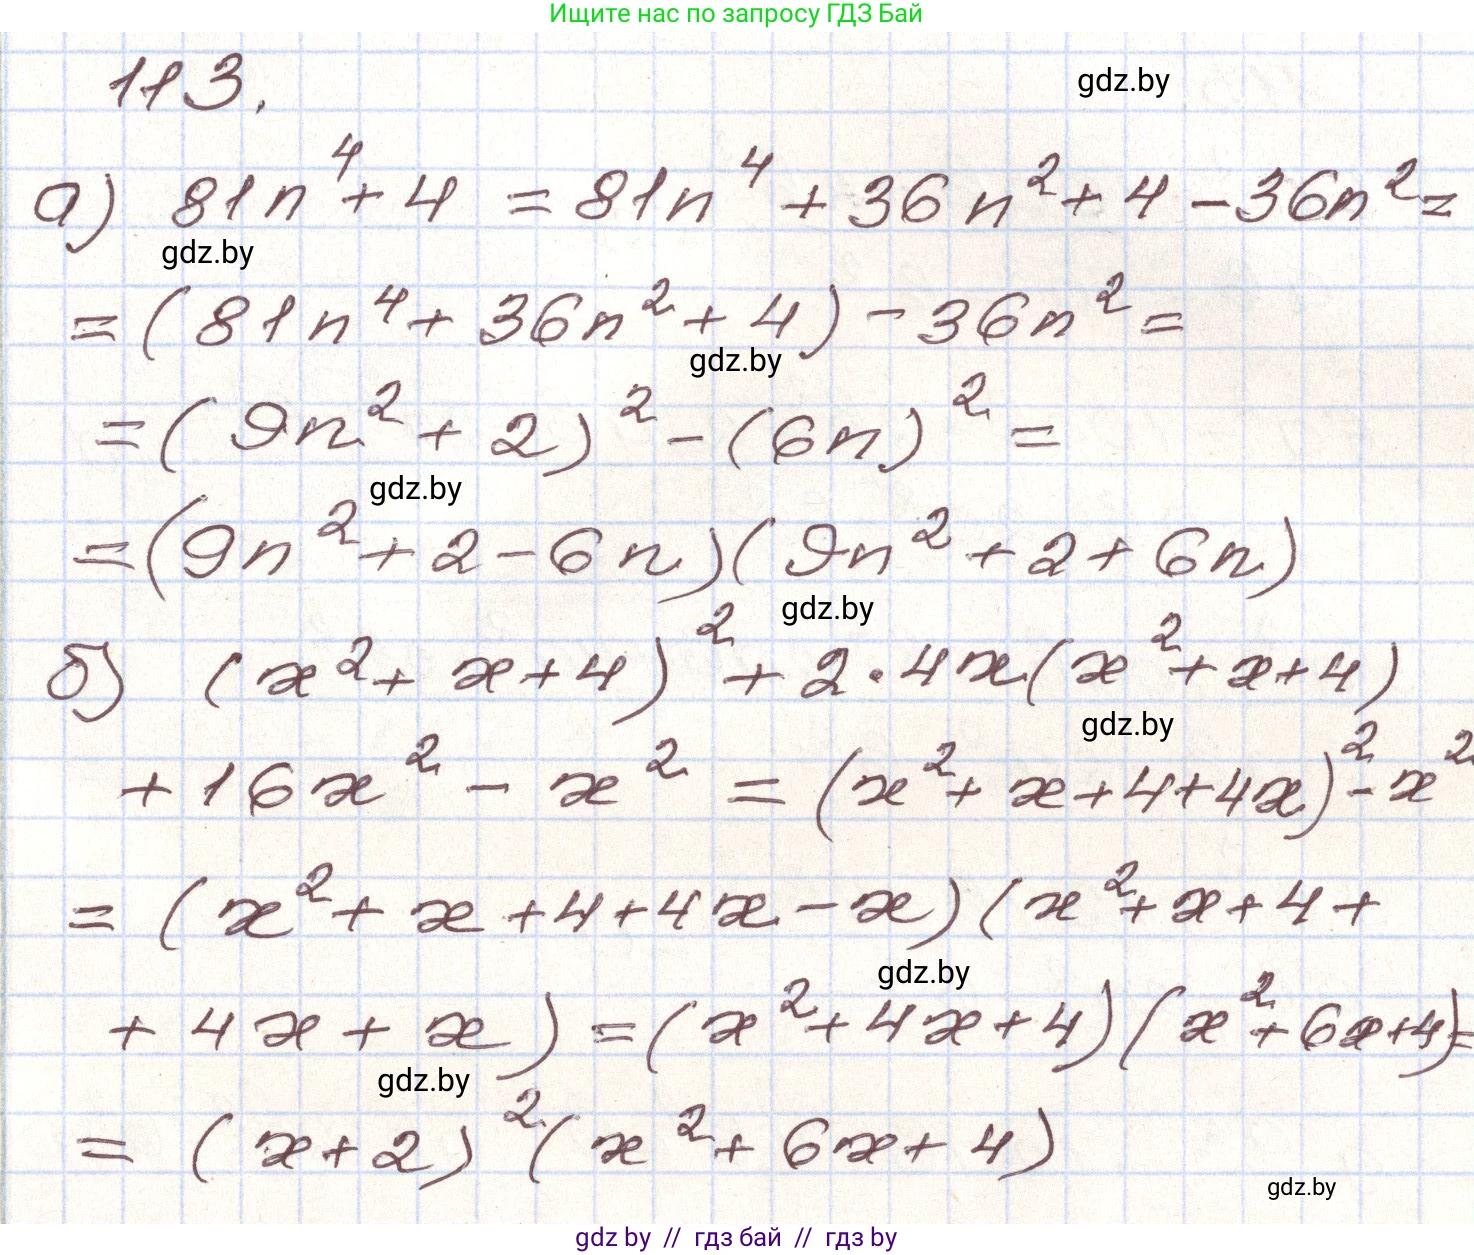 Ищите нас по запросу ГДЗ Бай
113.
gdz.by
а) 81n⁴ + 4 = 81n⁴ + 36n² + 4 - 36n² =
gdz.by
= (81n⁴ + 36n² + 4) - 36n² =
gdz.by
= (9n² + 2)² - (6n)² =
gdz.by
= (9n² + 2 - 6n)(9n² + 2 + 6n)
gdz.by
б) (x² + x + 4)² + 2 · 4x(x² + x + 4)
gdz.by
+ 16x² - x² = (x² + x + 4 + 4x)² - x²
= (x² + x + 4 + 4x - x)(x² + x + 4 +
gdz.by
+ 4x + x) = (x² + 4x + 4)(x² + 6x + 4) =
gdz.by
= (x + 2)²(x² + 6x + 4)
gdz.by
gdz by // гдз бай // гдз by